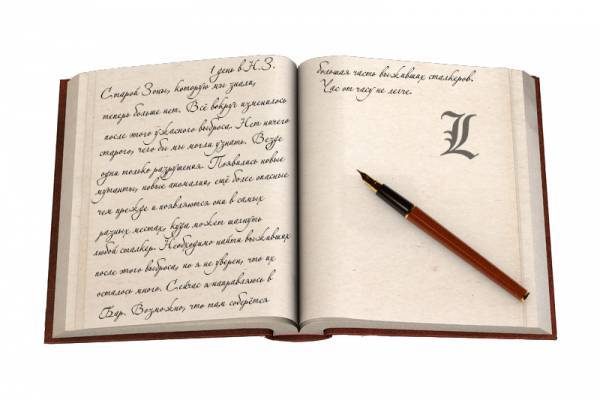 1 день в Н.З.
Старой Зоны, которую мы знали,
теперь больше нет. Всё вокруг изменилось
после того ужасного выброса. Нет ничего
старого, чего бы мы могли узнать. Везде
одни только разрушения. Появились новые
мутанты, новые аномалии, ещё более опасные
чем прежде и появляются они в самых
разных местах, куда может шагнуть
любой сталкер. Необходимо найти выживших
после этого выброса, но я не уверен, что их
осталось много. Сейчас я направляюсь в
Бар. Возможно, что там соберётся
большая часть выживших сталкеров.
Час от часу не легче.
L